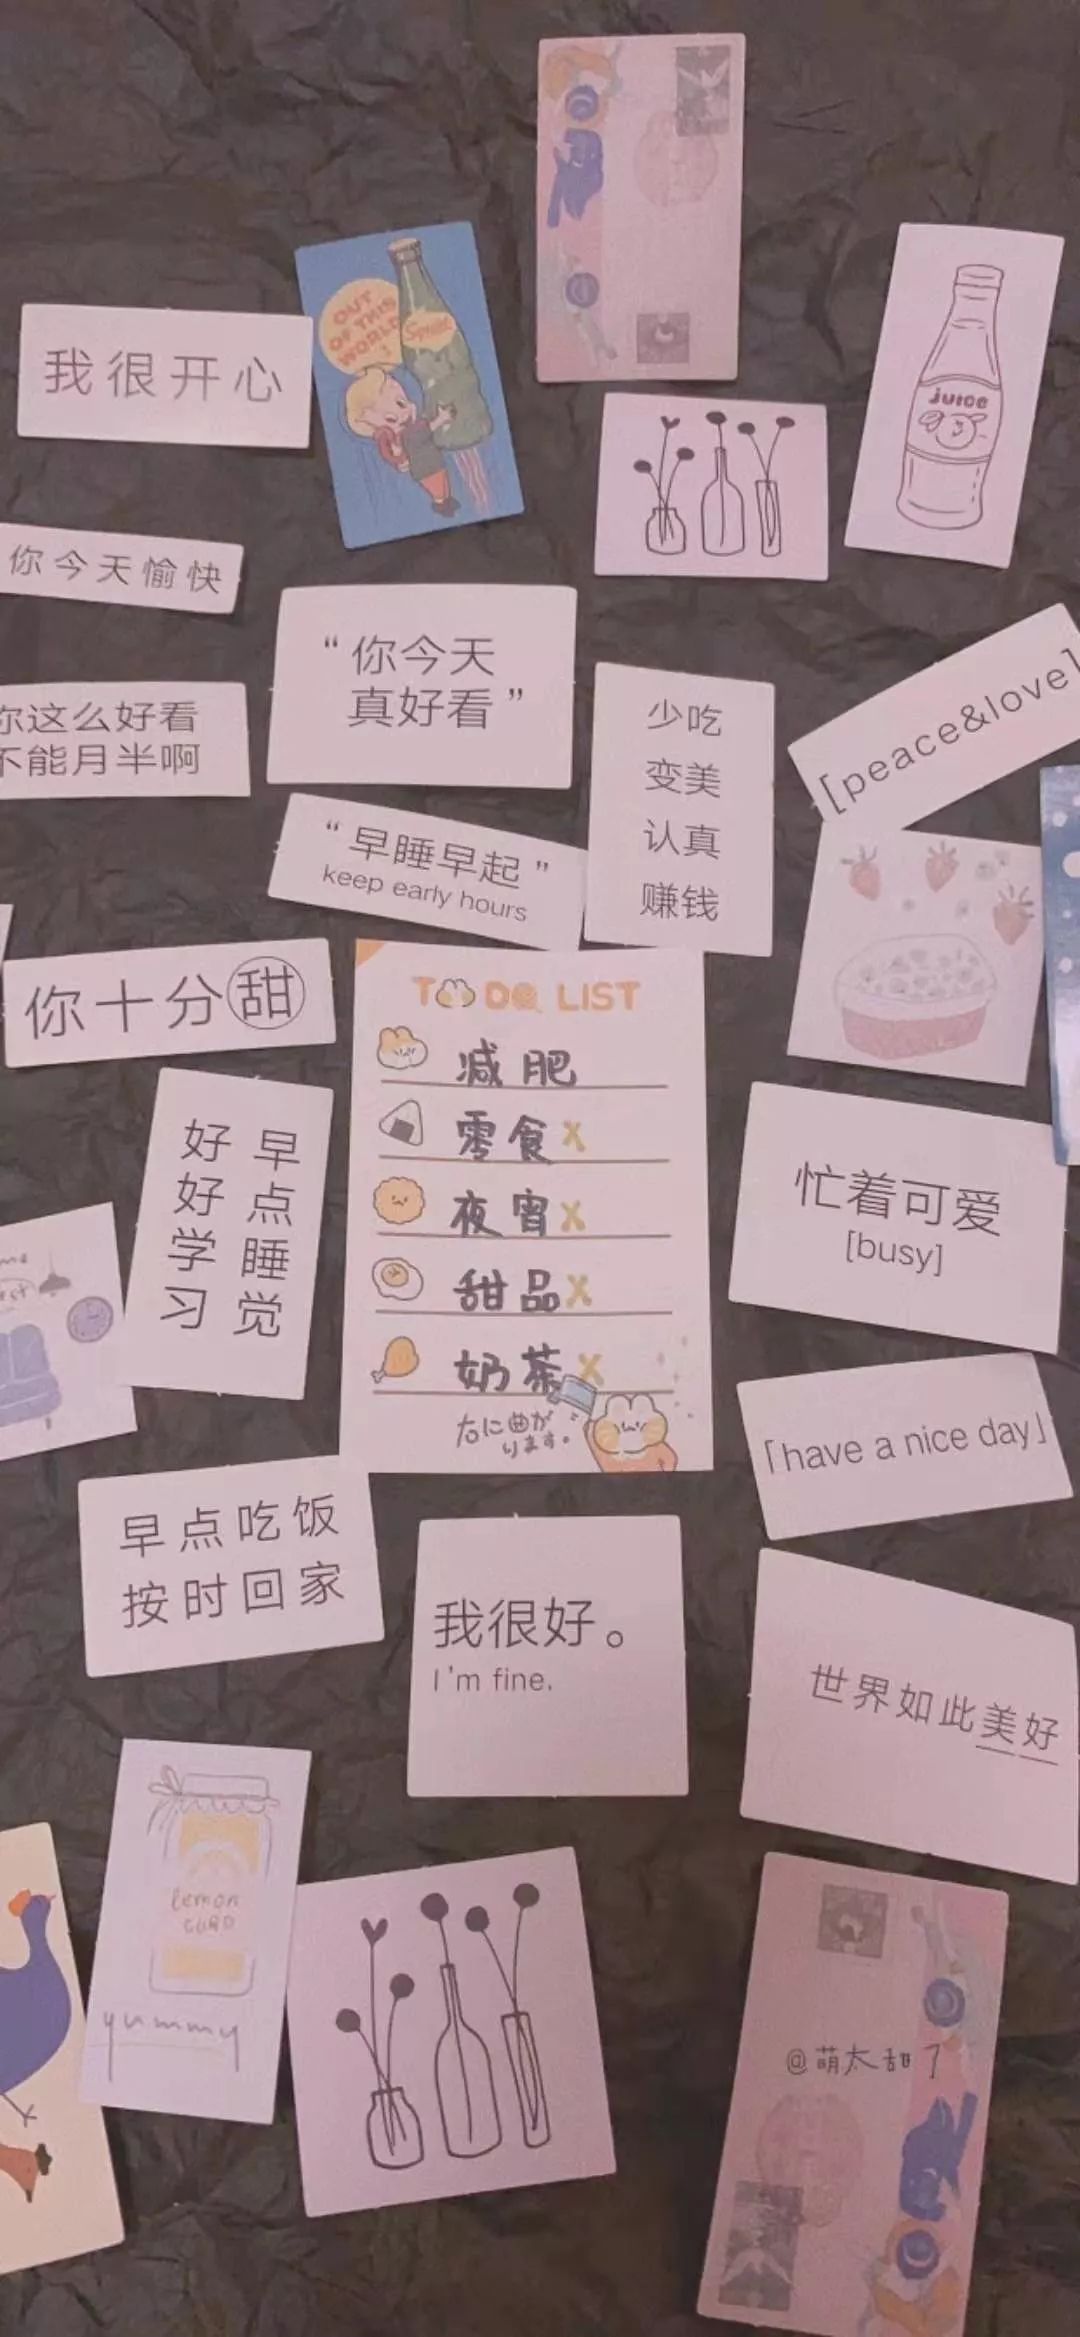 OUT
OF THIS
WORLD
!
Sprite
我很开心
juice
你今天愉快
“你今天
真好看”
你这么好看
不能月半啊
少吃
变美
认真
赚钱
[peace&love]
“早睡早起”
keep early hours
你十分甜
TO DO LIST
减肥
零食X
夜宵X
甜品X
奶茶X
右に曲が
ります。
早点睡觉
好好学习
忙着可爱
[busy]
「have a nice day」
早点吃饭
按时回家
我很好。
I'm fine.
世界如此美好
lemon
CURD
yummy
@萌太甜了